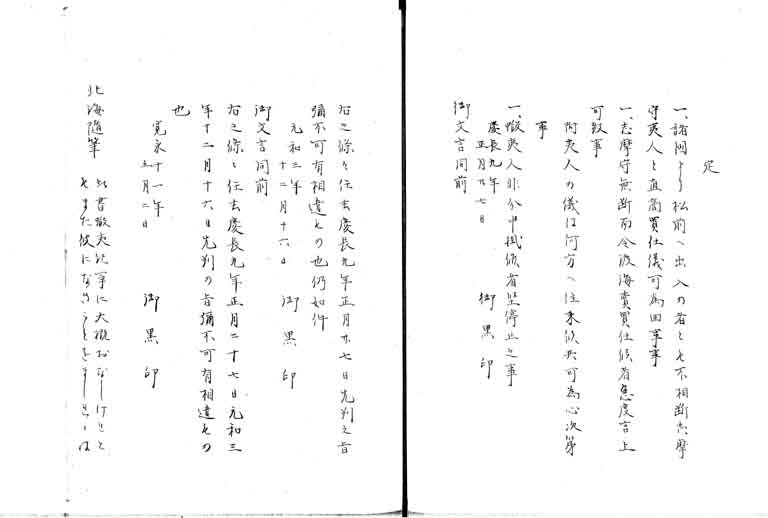 定
一、諸国より松前へ出入の者とも不相断志摩
守夷人と直商買仕儀可為曲事事
一、志摩守無断而令渡海売買仕候者急度言上
可致事
附夷人の儀は何方へ往来候共可為心次第
事
一、蝦夷人非分申掛候者堅停止之事
慶長九年
正月廿七日 御黒印
御文言同前
右之條々往去慶長九年正月廿七日先判之旨
彌不可有相違もの也仍如件
元和三年
十二月十六日 御黒印
御文言同前
右之條々往去慶長九年正月二十七日元和三
年十二月十六日先判の旨彌不可有相違もの
也
寛永十一年
五月二日 御黒印
北海随筆 此書蝦夷地事に大概おなしけれと